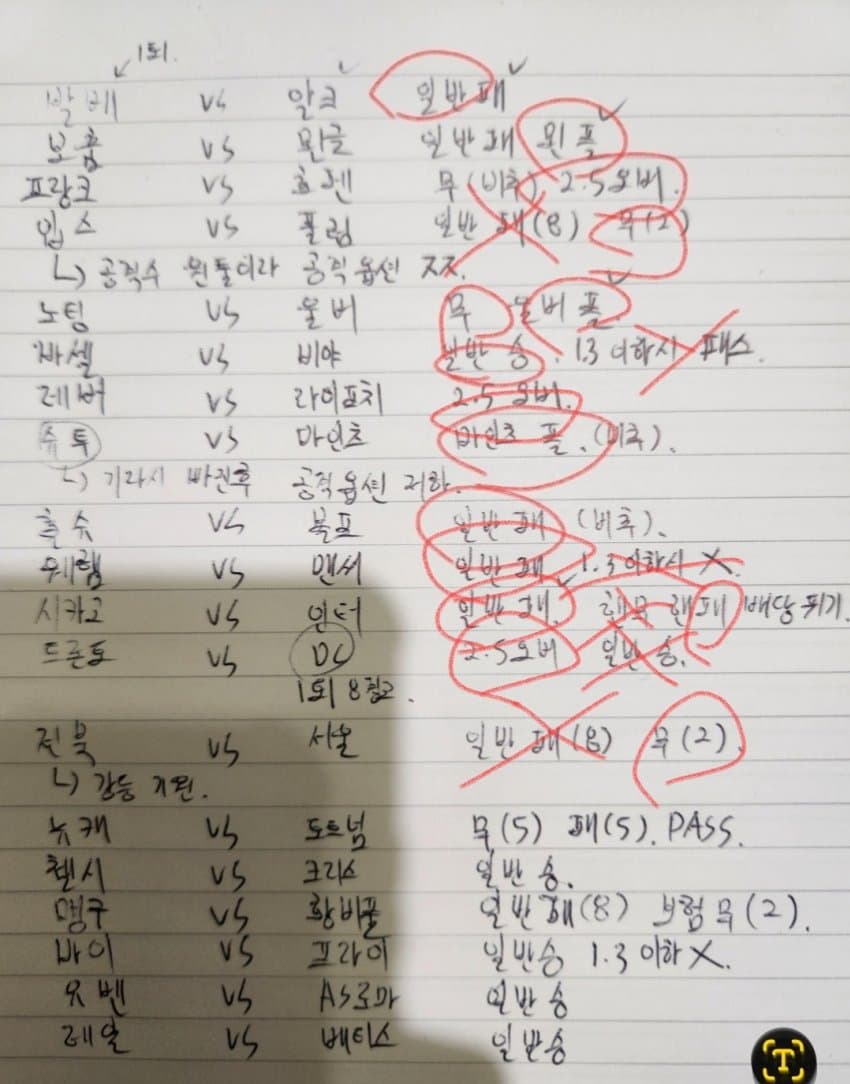 1퇴.
발베 vs 알크 일반패
보훔 vs 묀글 일반패 묀플
프랑크 vs 호펜 무(비추). 2.5오버.
입스 vs 풀럼 일반 패(8) 무(2)
ㄴ) 공격수 원톱이라 공격옵션 ㅈㅈ.
노팅 vs 울버 무 울버 플
바셀 vs 비야 일반 승. 1.3 이하시 패스.
레버 vs 라이프치 2.5 오버.
슈투 vs 마인츠 마인츠 플. (비추).
ㄴ) 기라시 빠진후 공격옵션 저하.
홀슈 vs 볼프 일반패 (비추).
웨햄 vs 맨시 일반패 1.3 이하시 X.
시카고 vs 인터 일반패. 핸무 핸패 배당 뛰기.
토론토 vs DC 2.5오버 일반 승.
1퇴 8참고.
전북 vs 서울 일반 패(8) 무(2).
ㄴ) 강등 지원.
뉴캐 vs 토트넘 무(5) 패(5). PASS.
첼시 vs 크리스 일반 승.
맹구 vs 황버풀 일반패(8) 보험무(2).
바이 vs 프라이 일반승 1.3 이하 X.
유벤 vs AS로마 일반승
레알 vs 베티스 일반승